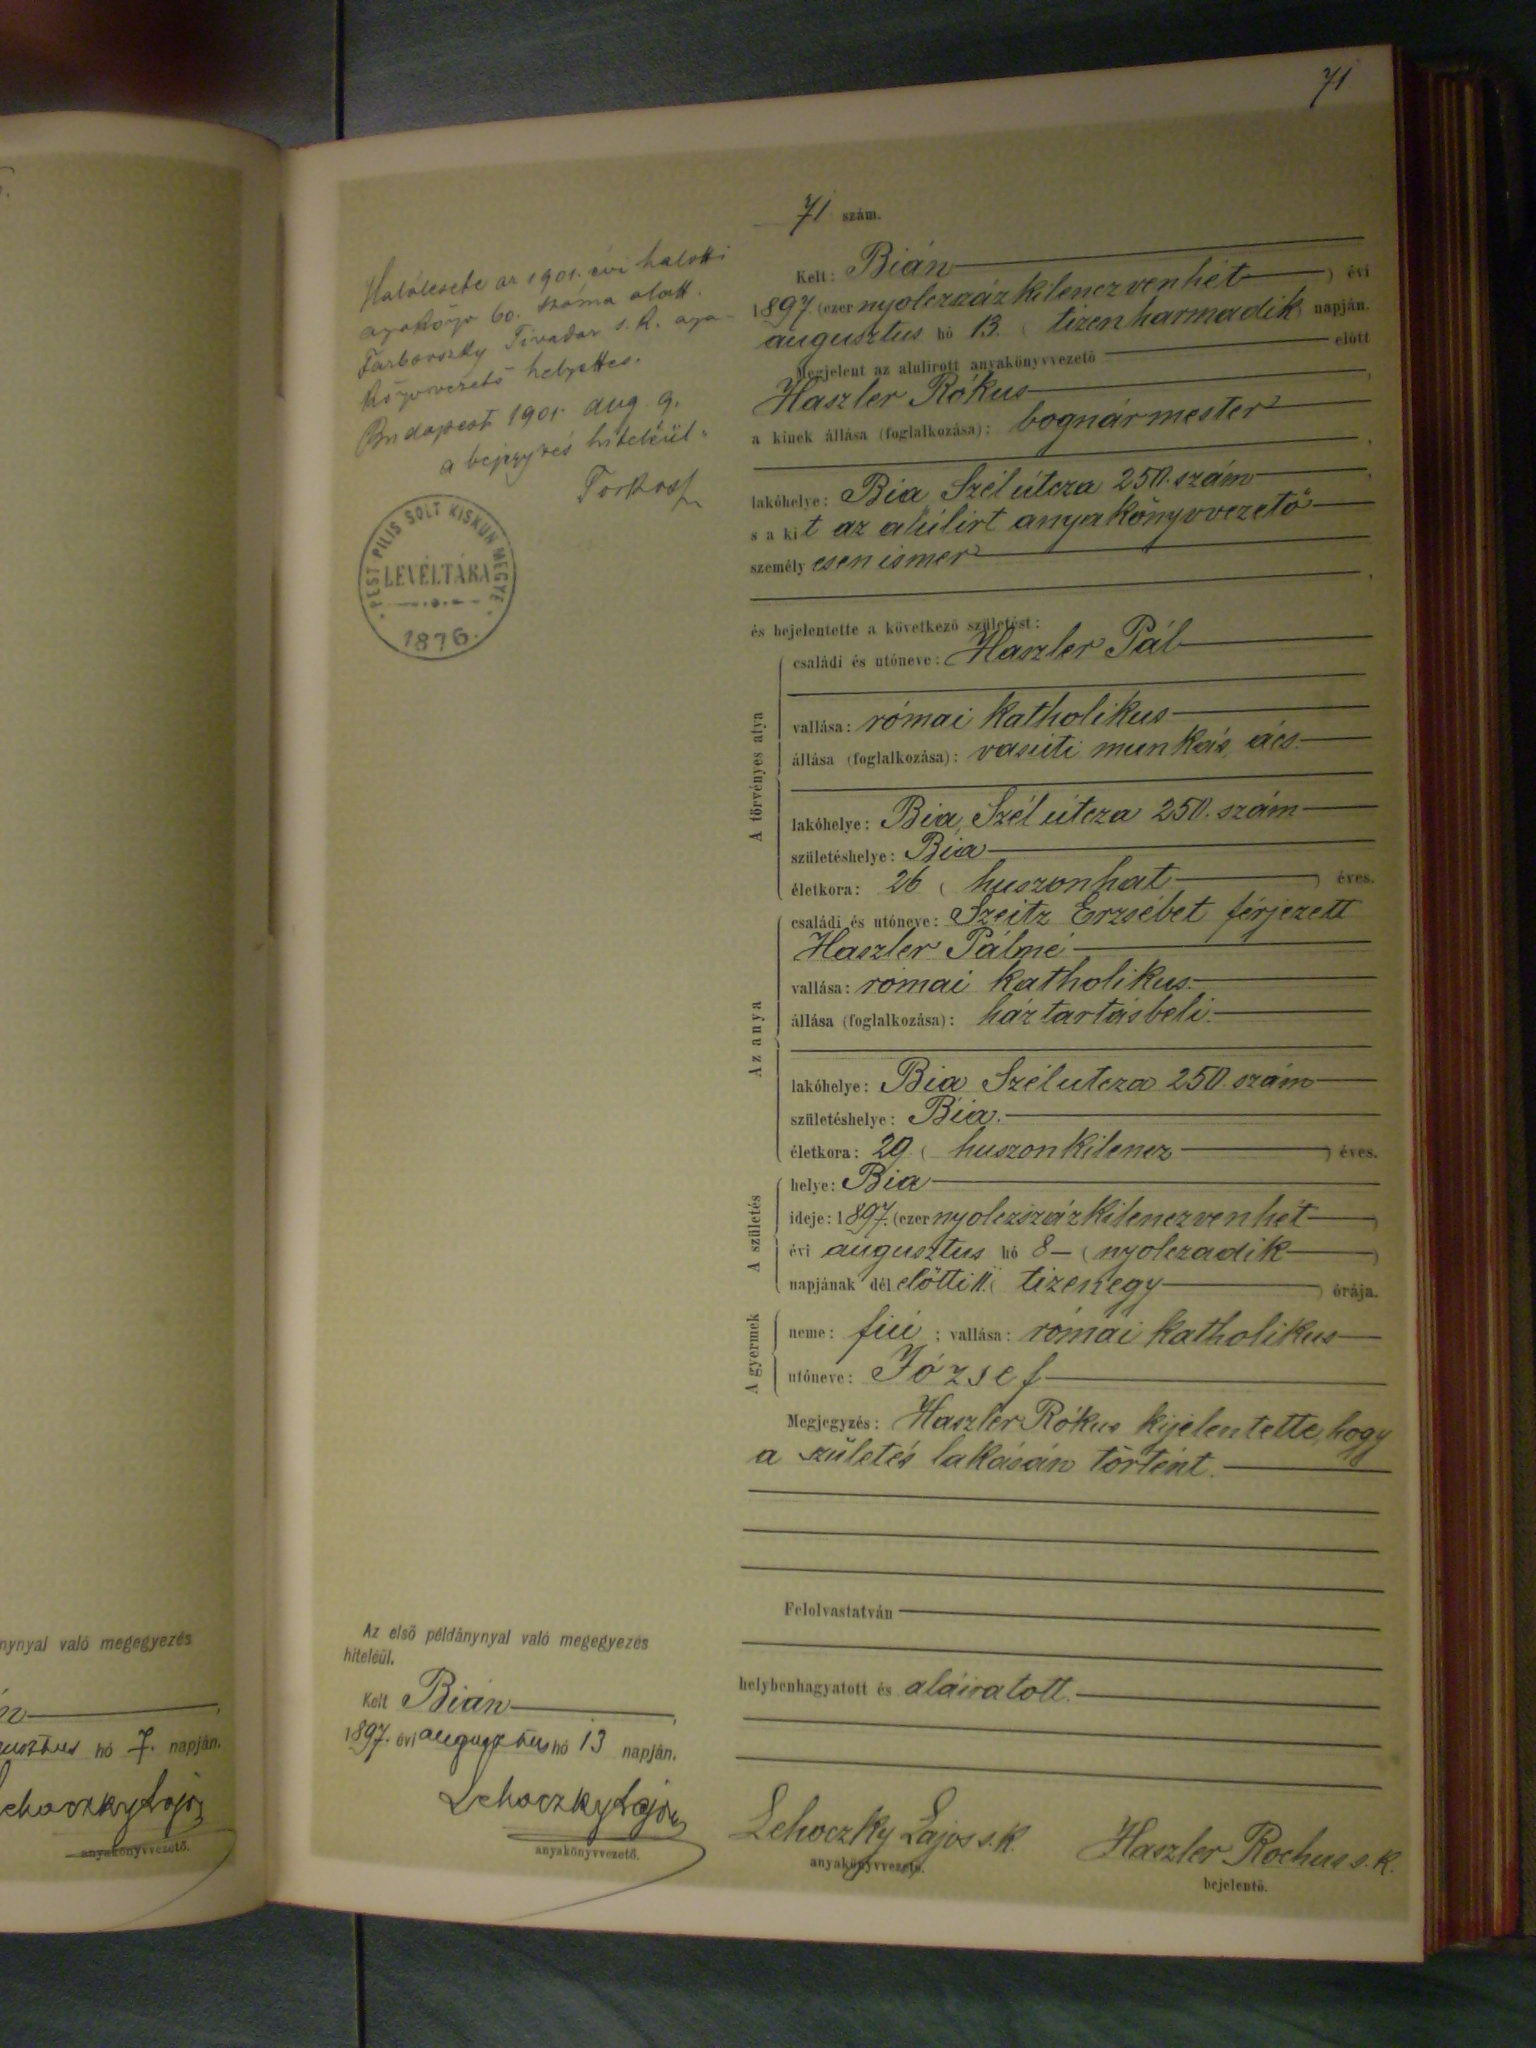 71
71 szám.
Kelt: Bián
1897. (ezer nyolczszáz kilenczvenhét) évi
augusztus hó 13. (tizenharmadik) napján.
Megjelent az alulirott anyakönyvvezető előtt
Haszler Rókus
a kinek állása (foglalkozása): bognármester
lakóhelye: Bia, Szél útcza 250. szám
s a kit az alúlirt anyakönyvvezető
személyesen ismer
és bejelentette a következő születést:
A törvényes atya
családi és utóneve: Haszler Pál
vallása: római katholikus
állása (foglalkozása): vasúti munkás, ács.
lakóhelye: Bia, Szél útcza 250. szám
születéshelye: Bia
életkora: 26 (huszonhat) éves.
Az anya
családi és utóneve: Szeitz Erzsébet férjezett
Haszler Pálné
vallása: római katholikus.
állása (foglalkozása): háztartásbeli.
lakóhelye: Bia Szél utcza 250. szám
születéshelye: Bia.
életkora: 29. (huszonkilencz) éves.
A születés
helye: Bia
ideje: 1897. (ezer nyolczszáz kilenczvenhét)
évi augusztus hó 8 (nyolczadik)
napjának dél előtti 11. (tizenegy) órája.
A gyermek
neme: fiú; vallása: római katholikus
utóneve: József
Megjegyzés: Haszler Rókus kijelentette, hogy
a születés lakásán történt.
Felolvastatván
helybenhagyatott és aláiratott.
Lehoczky Lajos s.k.
anyakönyvvezető.
Haszler Rochus s.k.
bejelentő.
Halálesete az 1901. évi halotti
anyakönyv 60. száma alatt.
Tivadar s.k. anya-
könyvvezető helyettes.
Budapest 1901. aug. 9.
a bejegyzés hiteléül
PEST PILIS SOLT KISKUN MEGYE
LEVÉLTÁRA
1876.
Az első példánynyal való megegyezés
hiteléül.
Kelt Bián
1897. évi augusztus hó 13 napján.
Lehoczky Lajos
anyakönyvvezető.
nynyal való megegyezés
hó 7. napján.
ehoczky Lajos
anyakönyvvezető.